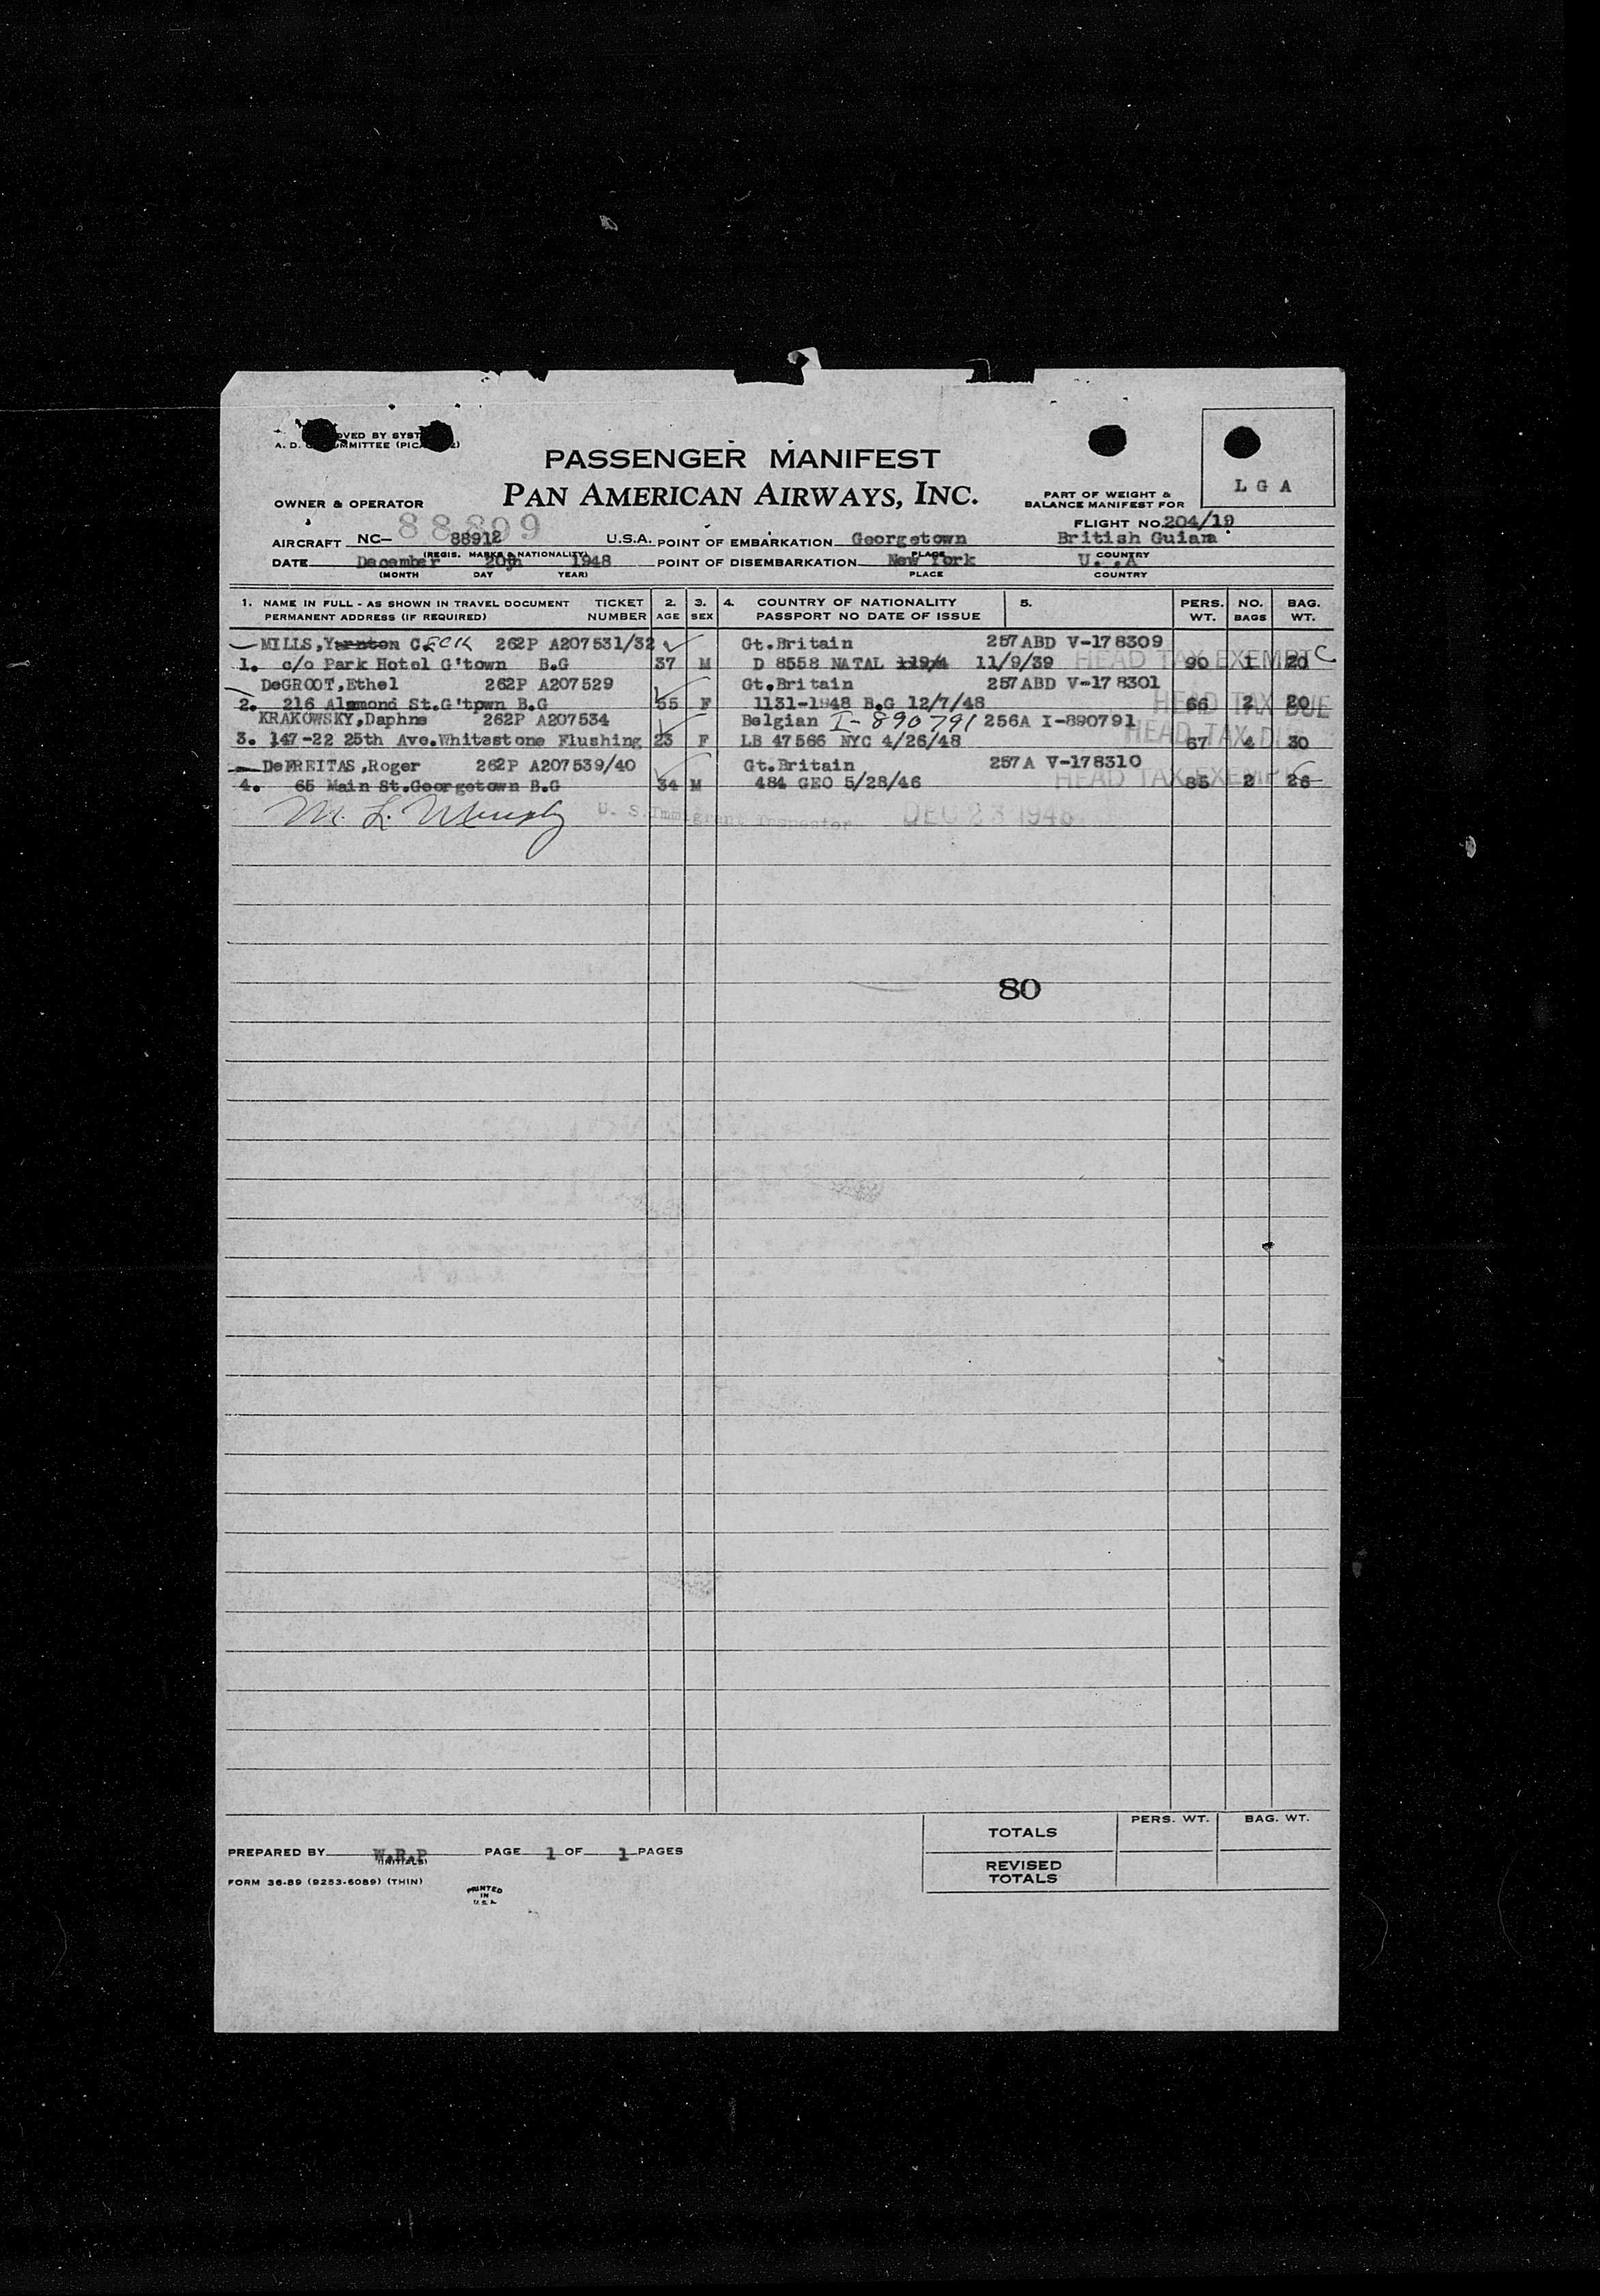 OVED BY SYST
A. D. MMITTEE (PIC
PASSENGER MANIFEST
PAN AMERICAN AIRWAYS, INC.
L G A
OWNER & OPERATOR
PART OF WEIGHT &
BALANCE MANIFEST FOR
FLIGHT NO. 204/19
88899
AIRCRAFT NC- 88912 U.S.A. POINT OF EMBARKATION Georgetown British Guiana
(REGIS. MARKS & NATIONALITY) PLACE COUNTRY
DATE December 20th 1948 POINT OF DISEMBARKATION New York U. .A
(MONTH DAY YEAR) PLACE COUNTRY
1. NAME IN FULL - AS SHOWN IN TRAVEL DOCUMENT TICKET 2. 3. 4. COUNTRY OF NATIONALITY 5. PERS. NO. BAG.
PERMANENT ADDRESS (IF REQUIRED) NUMBER AGE SEX PASSPORT NO DATE OF ISSUE WT. BAGS WT.
MILLS,Yarnton C. 262P A207531/32 Gt.Britain 257ABD V-178309
1. c/o Park Hotel G'town B.G 37 M D 8558 NATAL 11/9/39 HEAD TAX EXEMPT C 90 1 20
DeGROOT,Ethel 262P A207529 Gt.Britain 257ABD V-178301
2. 216 Alamond St.G'town B.G 55 F 1131-1948 B.G 12/7/48 HEAD TAX DUE 66 2 20
KRAKOWSKY,Daphne 262P A207534 Belgian I-890791 256A I-890791
3. 147-22 25th Ave.Whitestone Flushing 23 F LB 47566 NYC 4/26/48 HEAD TAX DUE 67 4 30
DeFREITAS,Roger 262P A207539/40 Gt.Britain 257A V-178310
4. 65 Main St.Georgetown B.G 34 M 484 GEO 5/28/46 HEAD TAX EXEMPT 85 2 26
M. L. Murphy U. S. Immigrant Inspector DEC 23 1948
80
TOTALS PERS. WT. BAG. WT.
REVISED
TOTALS
PREPARED BY W.R.P PAGE 1 OF 1 PAGES
(INITIALS)
FORM 36-89 (9253-6089) (THIN)
PRINTED
IN
U.S.A.